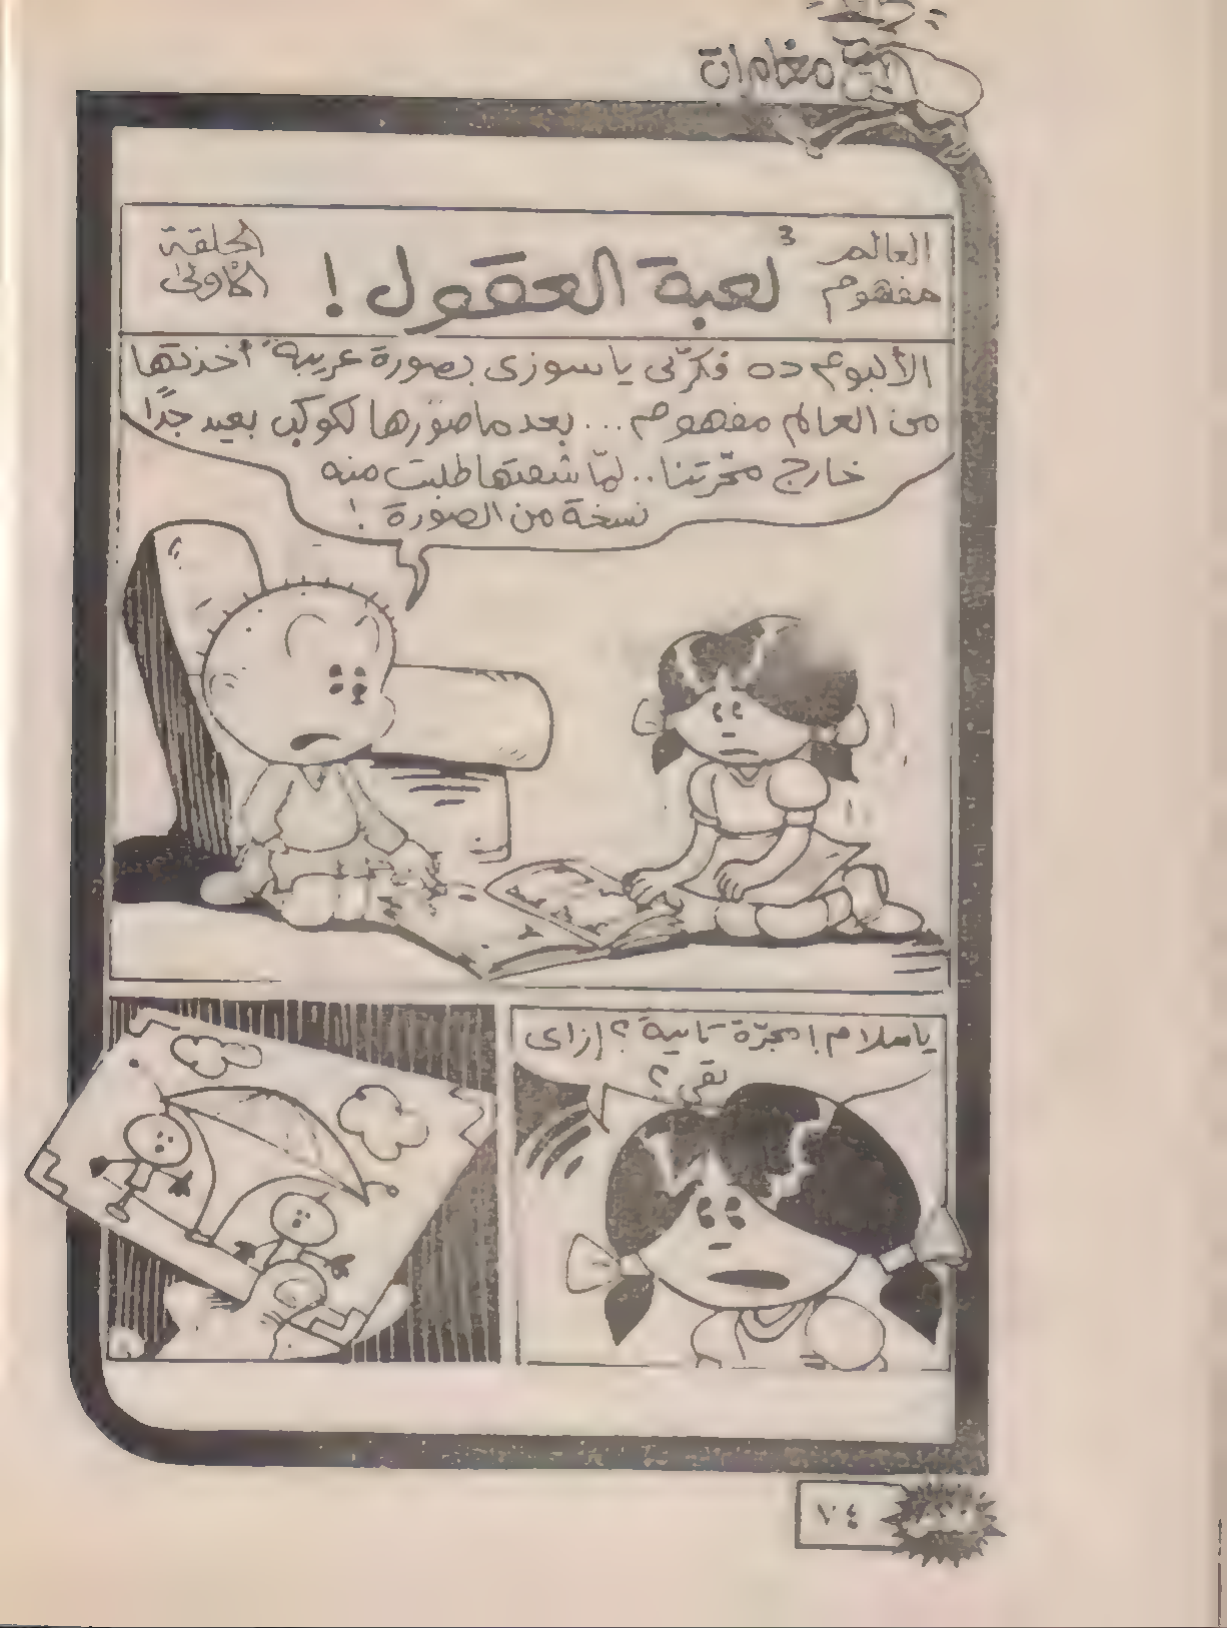 مغامرات
العالم
مفهوم
3
لعبة العقول !
الحلقة
الأولى
الألبوم ده فكرّنى يا سوزى بصورة غريبة أخذتها
من العالم مفهوم ... بعد ما صوّرها لكوكب بعيد جدًا
خارج مجرّتنا .. لمّا شفتها طلبت منه
نسخة من الصورة !
يا سلام ! مجرّة تانية ؟ إزاى
بقى ؟
٧٤